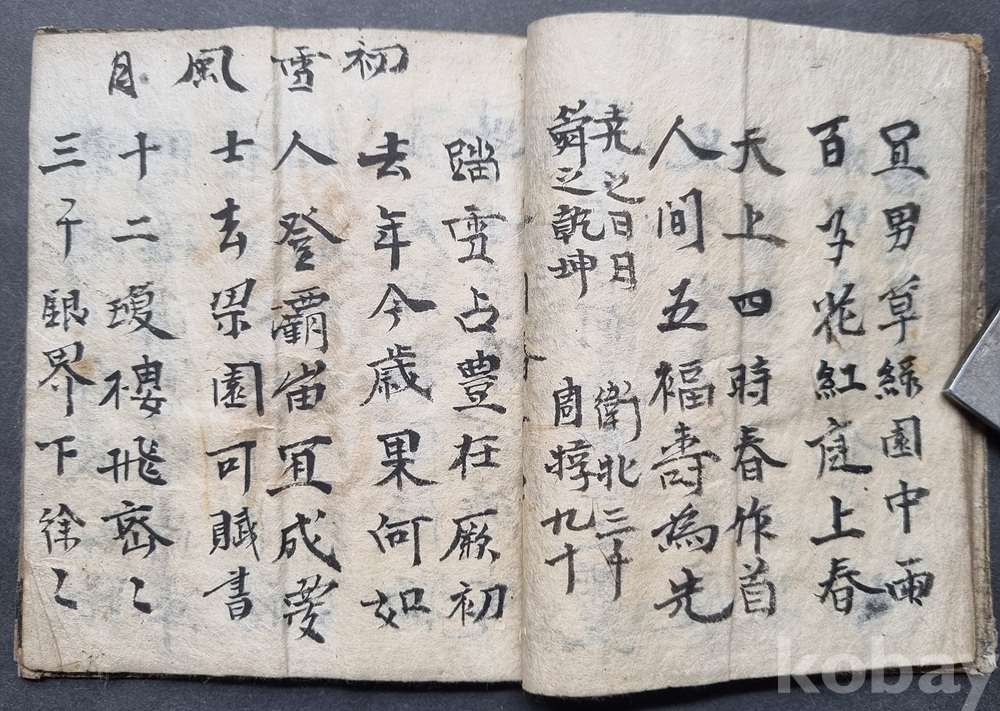 宜男草綠園中雨
百子花紅庭上春
天上四時春作首
人間五福壽為先
尭之日日
舜之乾坤
衛牝三千
周犉九十
初雪風月
踏雪占豊在厥初
去年今歲果何如
人登覇岸宜成夢
士去梁園可賦書
十二瓊樓飛密〻
三千銀界下徐〻
kobay